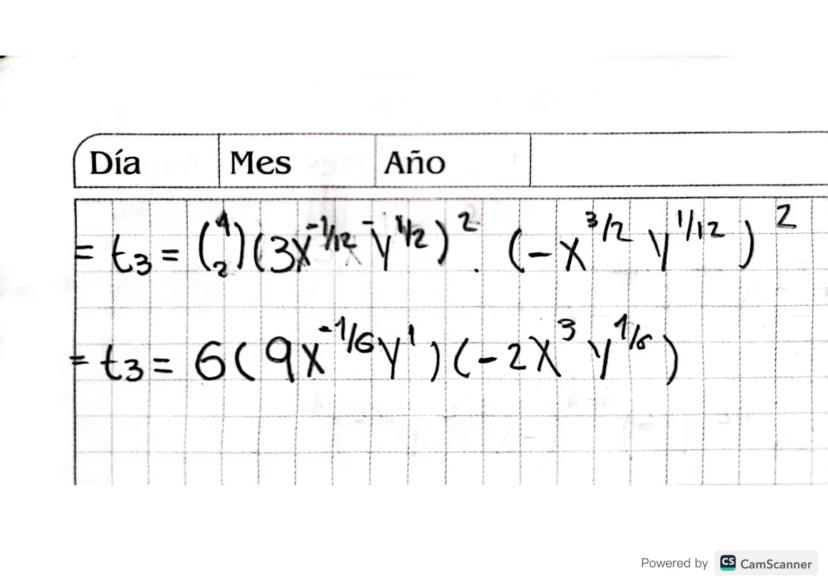 Día Mes Año
= t₃ = (4 2)(3x^-1/12 y^1/2)^2 . (-x^3/2 y^1/12)^2
= t₃ = 6(9x^-1/6 y^1)(-2x^3 y^1/6)
Powered by CS CamScanner